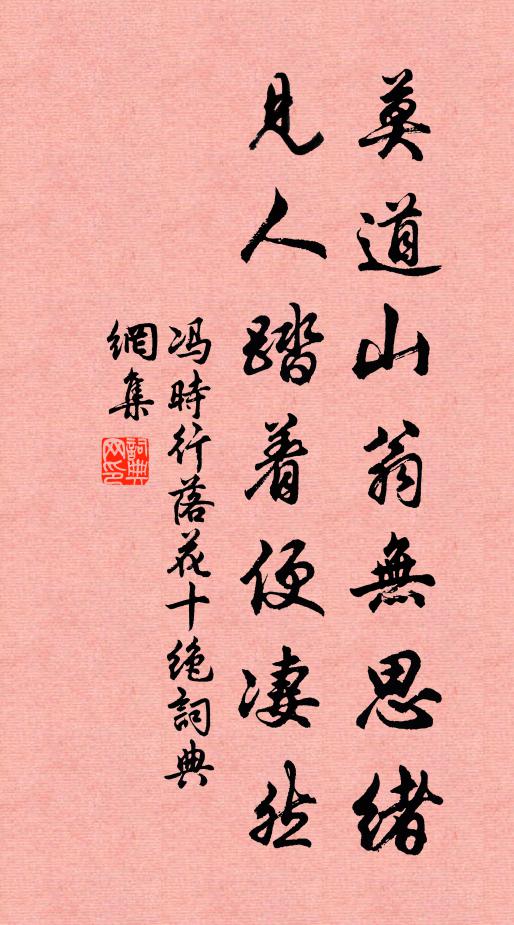 莫道山翁無思緒
見人踏着便淒然
馮時行落花十绝詞典
網集
詞典網印